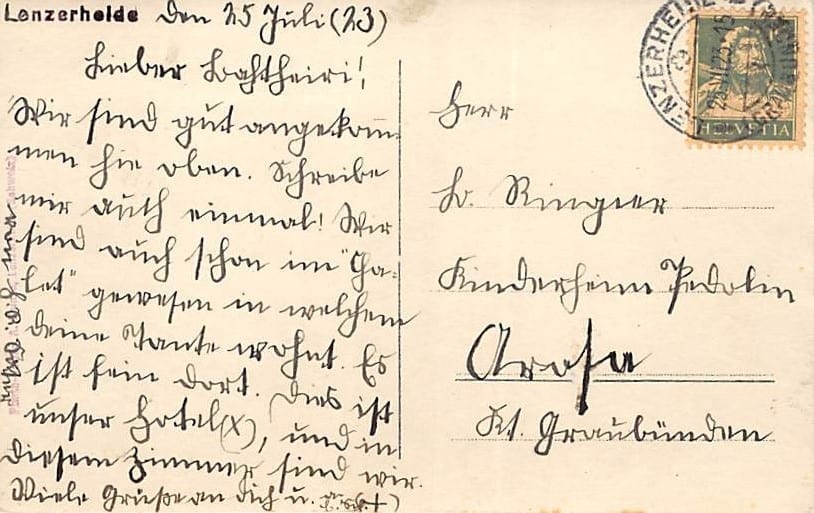 Lenzerheide den 25 Juli (23)
Lieber
Wir sind gut angekom-
men hie oben. Schreibe
mir auch einmal! Wir
sind auch schon im "Cha-
let" gewesen in welchem
deine Tante wohnt. Es
ist fein dort. Dies ist
unser Hotel (X), und in
diesem Zimmer sind wir.
Viele Grüße an dich u.
Herr
H. Ringier
Kinderheim Pedolin
Arosa
Kt. Graubünden
LENZERHEIDE
HELVETIA